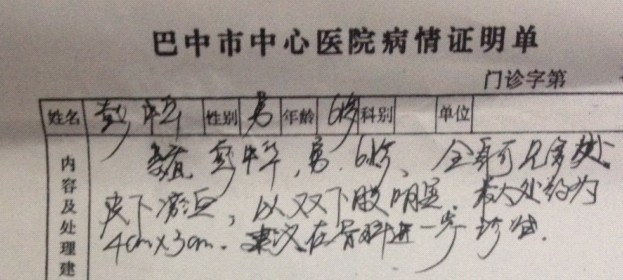 巴中市中心医院病情证明单
门诊字第
姓名 彭 性别 男 年龄 6岁 科别 单位
内容及处理建
彭 男 6岁、全身可见多处
皮下瘀斑,以双下肢明显,最大处约为
4cm×3cm. 建议在骨科进一步诊治.